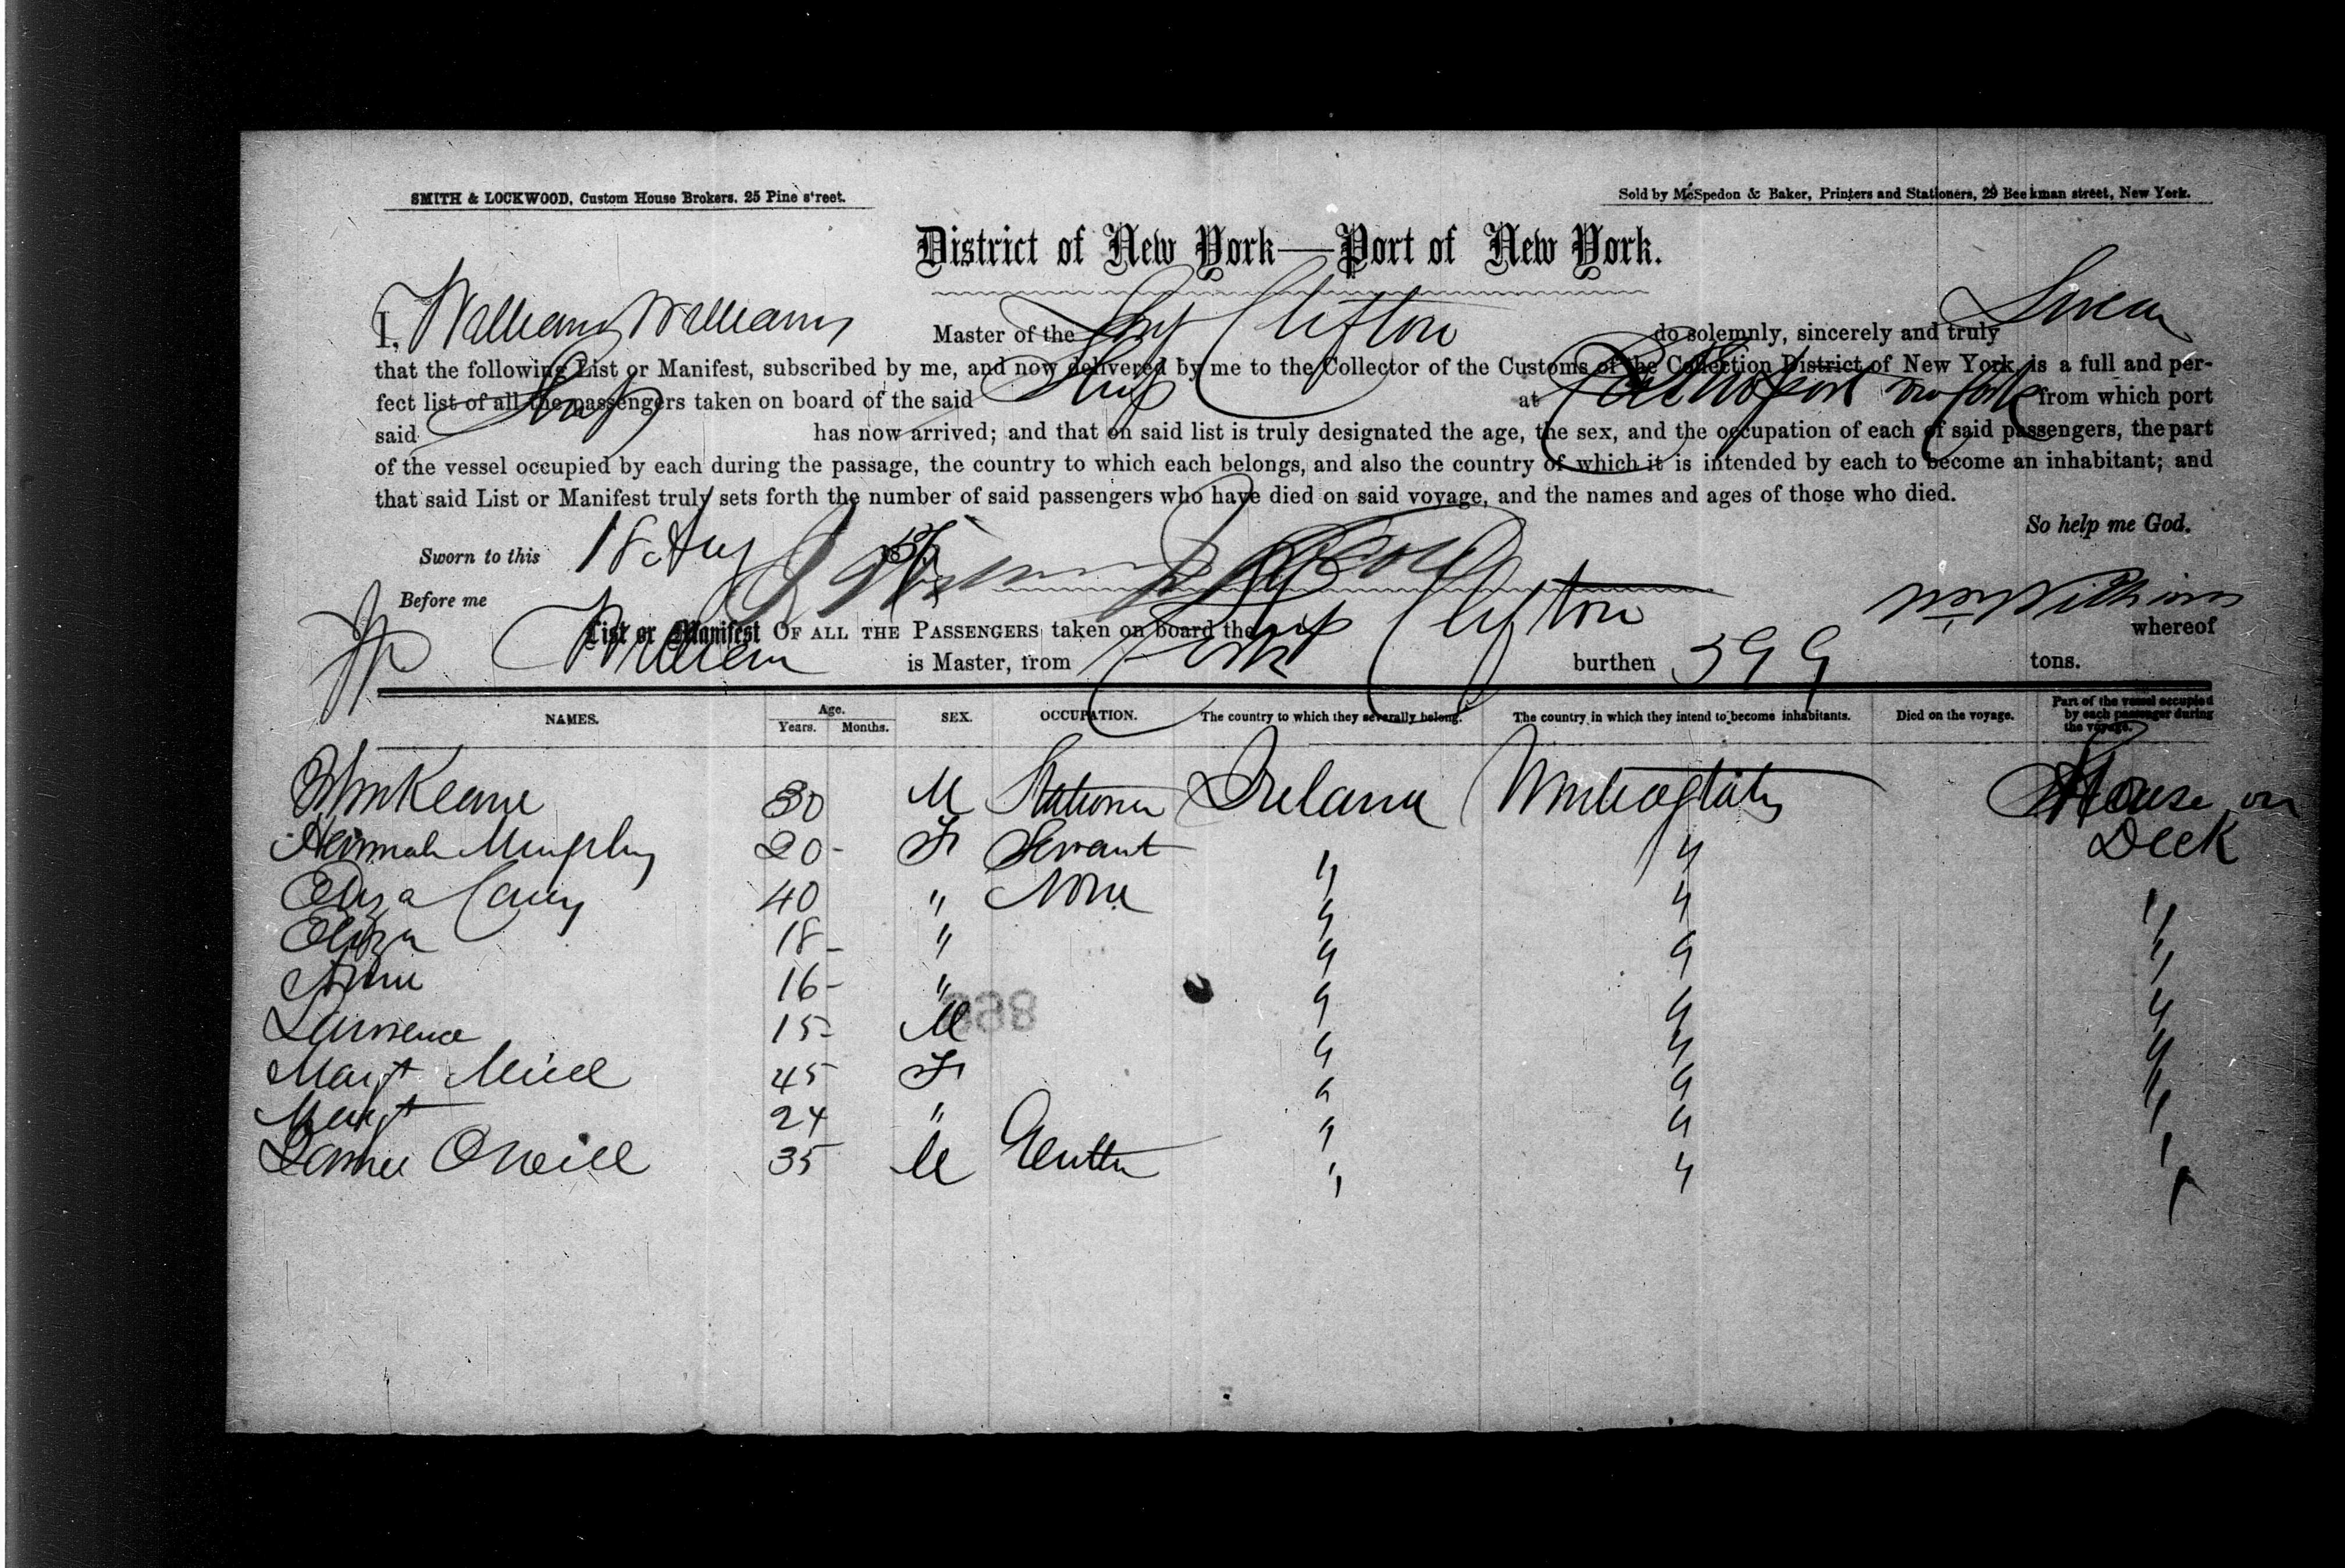 SMITH & LOCKWOOD, Custom House Brokers. 25 Pine s'reet.
Sold by McSpedon & Baker, Printers and Stationers, 29 Beekman street, New York.
District of New York—Port of New York.
I, William Williams Master of the Ship Clifton do solemnly, sincerely and truly Swear
that the following List or Manifest, subscribed by me, and now delivered by me to the Collector of the Customs of the Collection District of New York, is a full and per-
fect list of all the passengers taken on board of the said Ship at from which port
said Ship has now arrived; and that on said list is truly designated the age, the sex, and the occupation of each of said passengers, the part
of the vessel occupied by each during the passage, the country to which each belongs, and also the country of which it is intended by each to become an inhabitant; and
that said List or Manifest truly sets forth the number of said passengers who have died on said voyage, and the names and ages of those who died.
So help me God.
Sworn to this 18 Aug
Before me
Wm Williams
List or Manifest OF ALL THE PASSENGERS taken on board the Ship Clifton whereof
William is Master, from Cork burthen 599 tons.
NAMES. Age. Years. Months. SEX. OCCUPATION. The country to which they severally belong. The country in which they intend to become inhabitants. Died on the voyage. Part of the vessel occupied by each passenger during the voyage.
John Keane 30 M Stationer Ireland United States House on
Hannah Murphy 20 - F Servant " " Deck
Eliza 40 " None " " "
Eliza 18 - " " " "
Annie 16 - " " " "
Lawrence 15 - M " " "
Margt 45 F " " "
Margt 24 " " " "
ONeill 35 M " " "